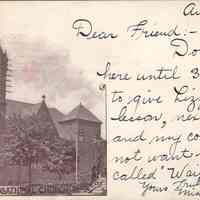 Au
Dear Friend:-
Do
here until 3
to give Lizz
lesson, ner
and my co
not want
called "Wai
Yours Trul
Miss
ATIONAL CHURCH